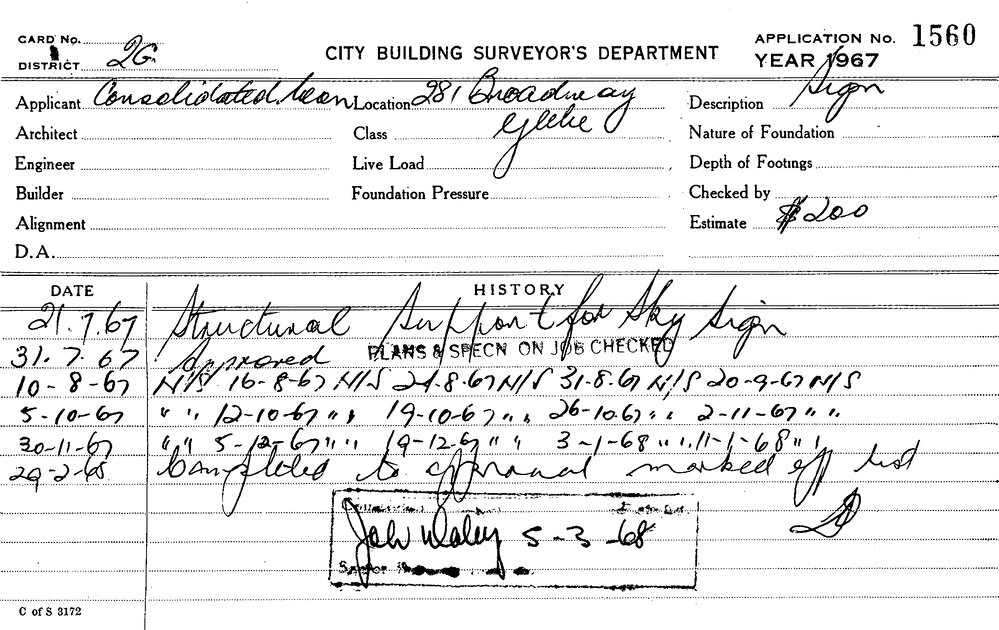 CARD No.
DISTRICT 2G.
CITY BUILDING SURVEYOR'S DEPARTMENT
APPLICATION No. 1560
YEAR 1967
Applicant Consolidated Neon Location 281 Broadway Glebe Description Sign
Architect Class Nature of Foundation
Engineer Live Load Depth of Footings
Builder Foundation Pressure Checked by
Alignment Estimate $200
D.A.
DATE HISTORY
21.7.67 Structural Support for Sky Sign
31.7.67 Approved PLANS & SPECN ON JOB CHECKED
10-8-67 N/S 16-8-67 N/S 24-8-67 N/S 31-8-67 N/S 20-9-67 N/S
5-10-67 " " 12-10-67 " " 19-10-67 " " 26-10-67 " " 2-11-67 " "
30-11-67 " " 5-12-67 " " 19-12-67 " " 3-1-68 " " 11-1-68 " "
29-2-68 Completed to approval marked off list
John Daley 5-3-68
C of S 3172